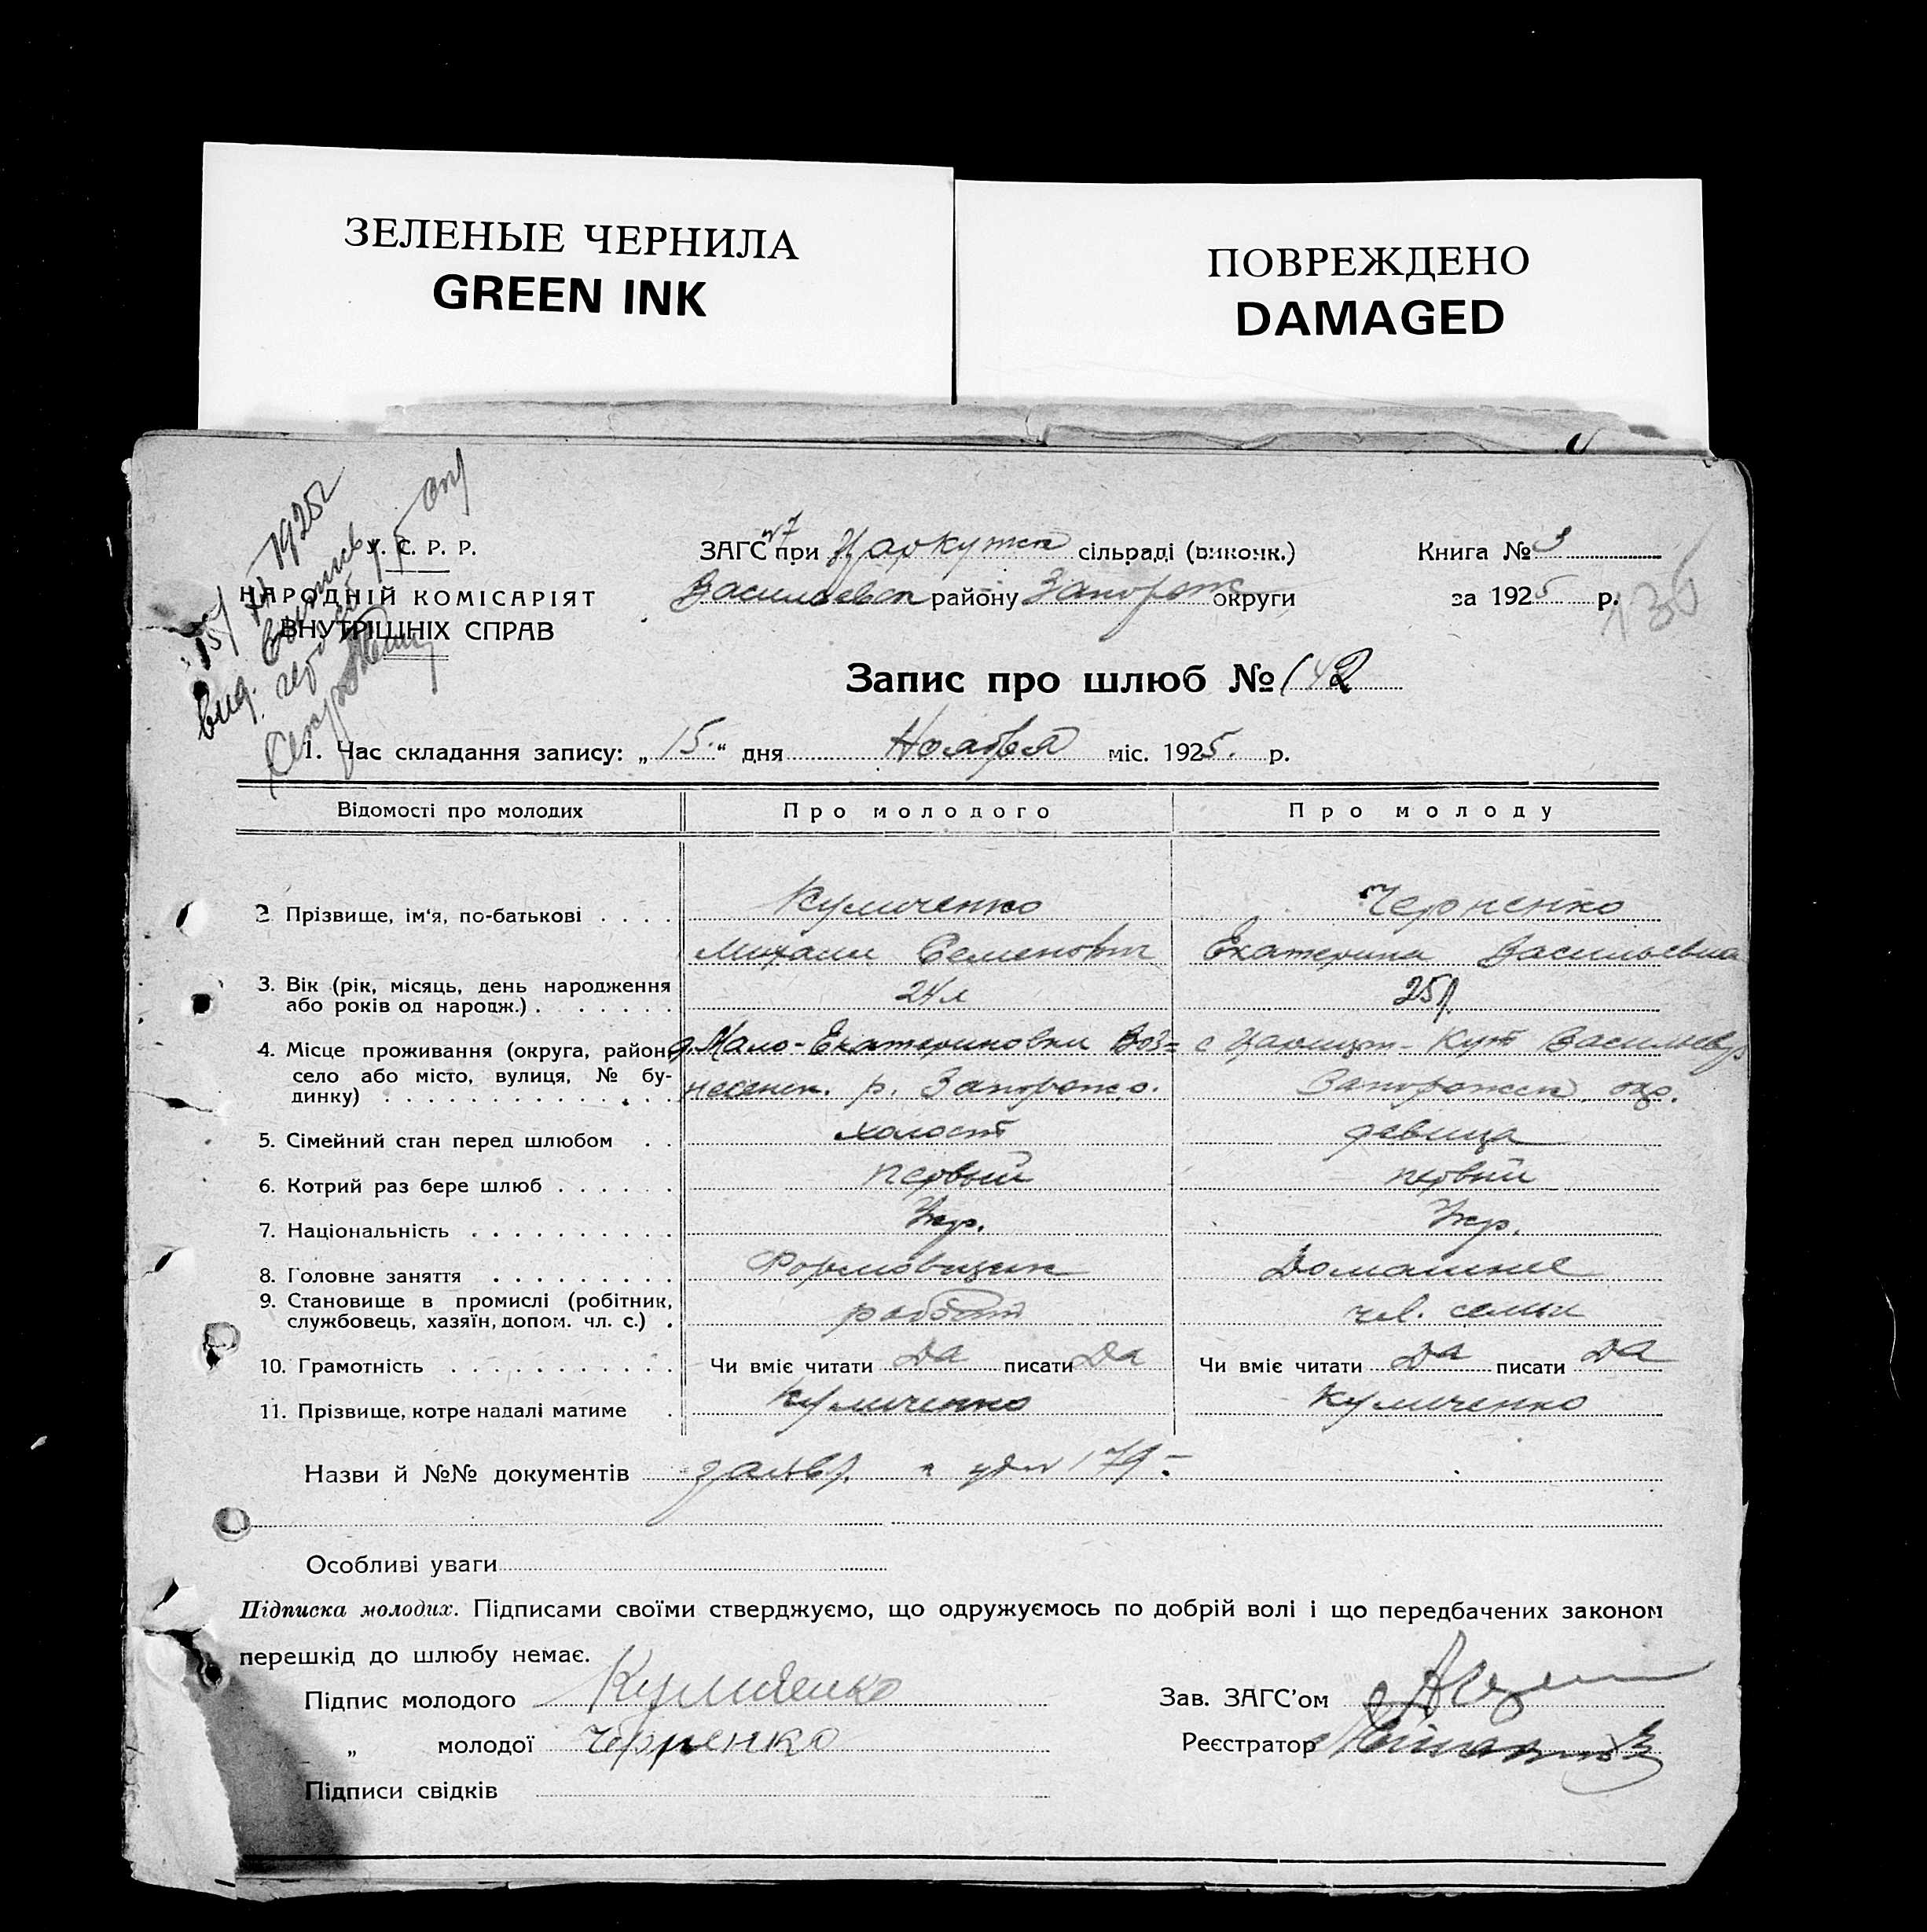 ЗЕЛЕНЫЕ ЧЕРНИЛА
GREEN INK
ПОВРЕЖДЕНО
DAMAGED
15/XI 1925 г
вид. выпись
У. С. Р. Р.
НАРОДНІЙ КОМІСАРІЯТ
ВНУТРІШНІХ СПРАВ
ЗАГС №7 при Царкутск сільраді (виконк.)
Васильевск району Запорож округи
Книга № 3
за 1925 р.
136
Запис про шлюб № 142
1. Час складання запису: „15.“ дня Ноября міс. 1925. р.
Відомості про молодих Про молодого Про молоду
2 Прізвище, ім'я, по-батькові . . . . Куличенко Черненко
Михаил Семенович Екатерина Васильевна
3. Вік (рік, місяць, день народження
або років од народж.) . . . . . . 24 л 25 л
4. Місце проживання (округа, район, д. Мало-Екатериновки Воз= с Царицын-Кут Васильев р
село або місто, вулиця, № бу-
динку) . . . . . . . . . . . . . . несенск. р. Запорож. о. Запорожск. окр.
5. Сімейний стан перед шлюбом . . холост девица
6. Котрий раз бере шлюб . . . . . . первый первый
7. Національність . . . . . . . . . . Укр. Укр.
8. Головне заняття . . . . . . . . . Формовщик Домашнее
9. Становище в промислі (робітник,
службовець, хазяїн, допом. чл. с.) . работ чл. семьи
10. Грамотність . . . . . . . . . . . Чи вміє читати да писати да Чи вміє читати да писати да
11. Прізвище, котре надалі матиме . Куличенко Куличенко
Назви й №№ документів заявл. и удп 179 -
Особливі уваги
Підписка молодих. Підписами своїми стверджуємо, що одружуємось по добрій волі і що передбачених законом
перешкід до шлюбу немає.
Підпис молодого Куличенко Зав. ЗАГС'ом
„ молодої Черненко Реєстратор
Підписи свідків